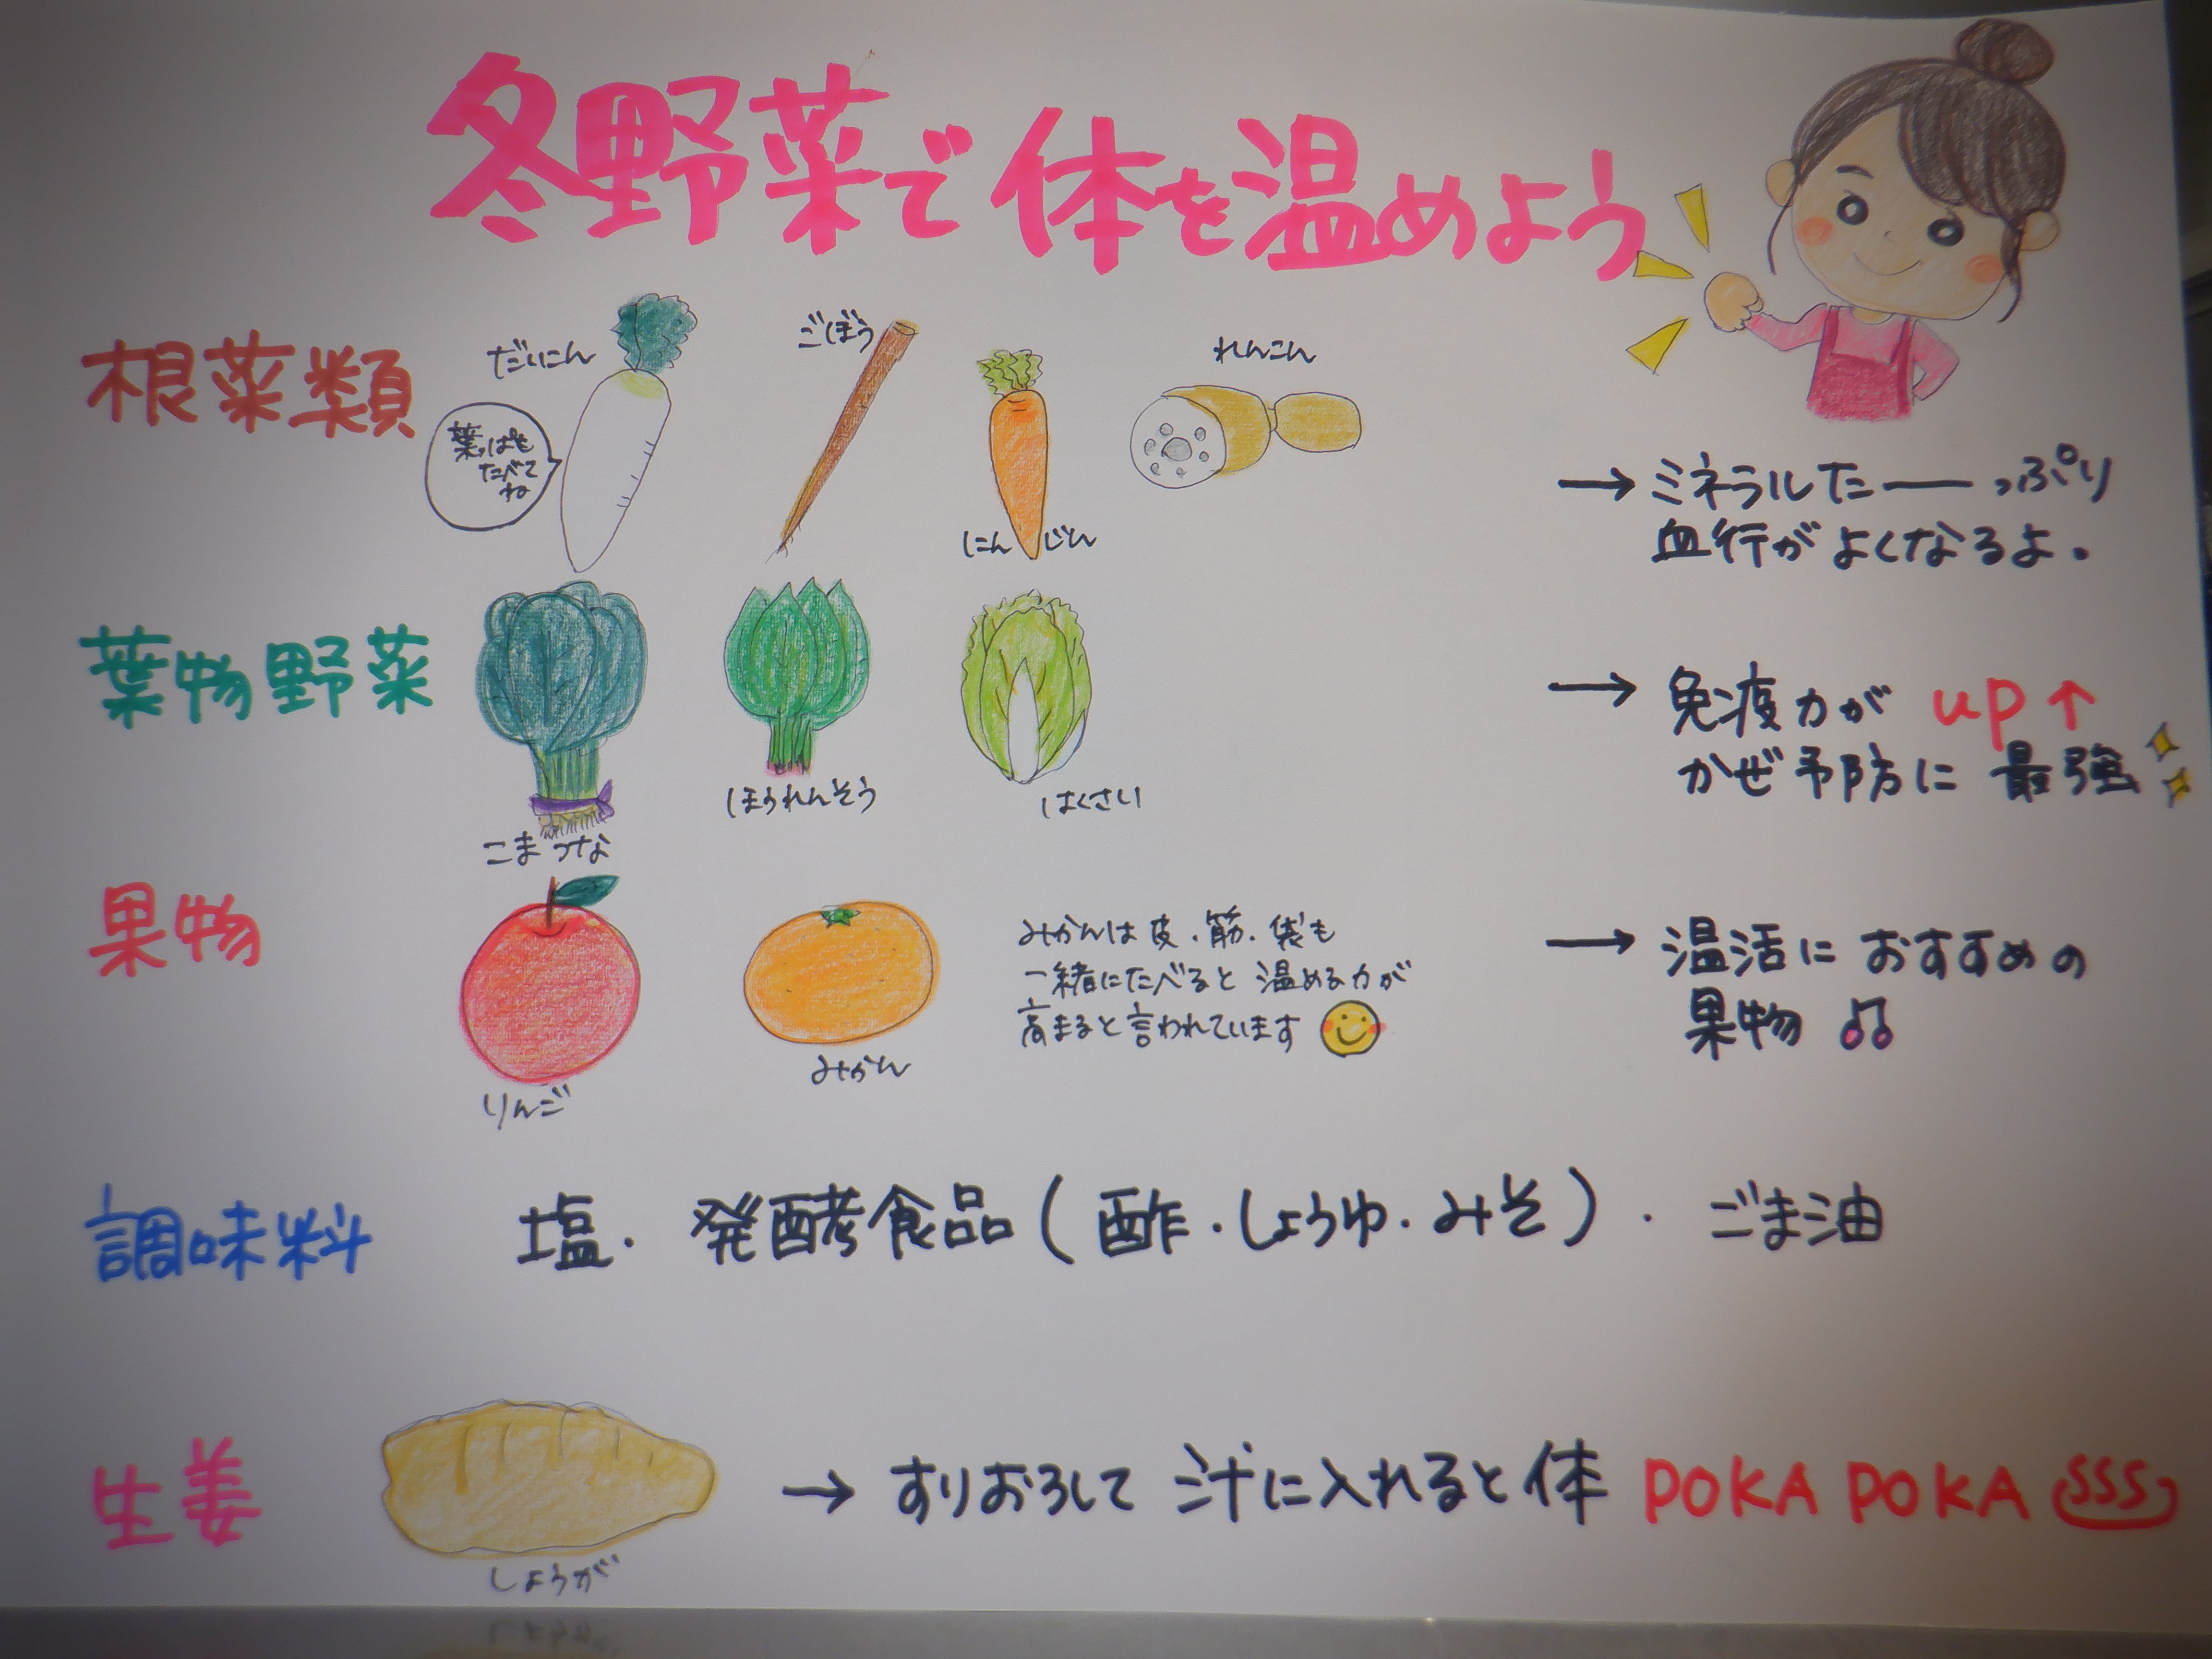 冬野菜で体を温めよう
根菜類
だいこん
葉っぱも
たべて
ね
ごぼう
にんじん
れんこん
→ミネラルたーっぷり
血行がよくなるよ。
葉物野菜
こまつな
ほうれんそう
はくさい
→免疫力が up↑
かぜ予防に 最強
果物
りんご
みかん
みかんは皮・筋・袋も
一緒にたべると 温める力が
高まると言われています
→温活に おすすめの
果物 ♫
調味料 塩・発酵食品(酢・しょうゆ・みそ)・ごま油
生姜
しょうが
→すりおろして 汁に入れると体 POKA POKA